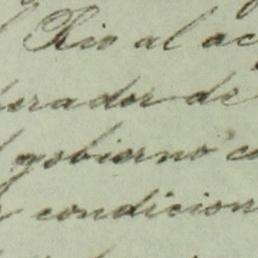 Rio al ac
erador de
gobierno co
condicion